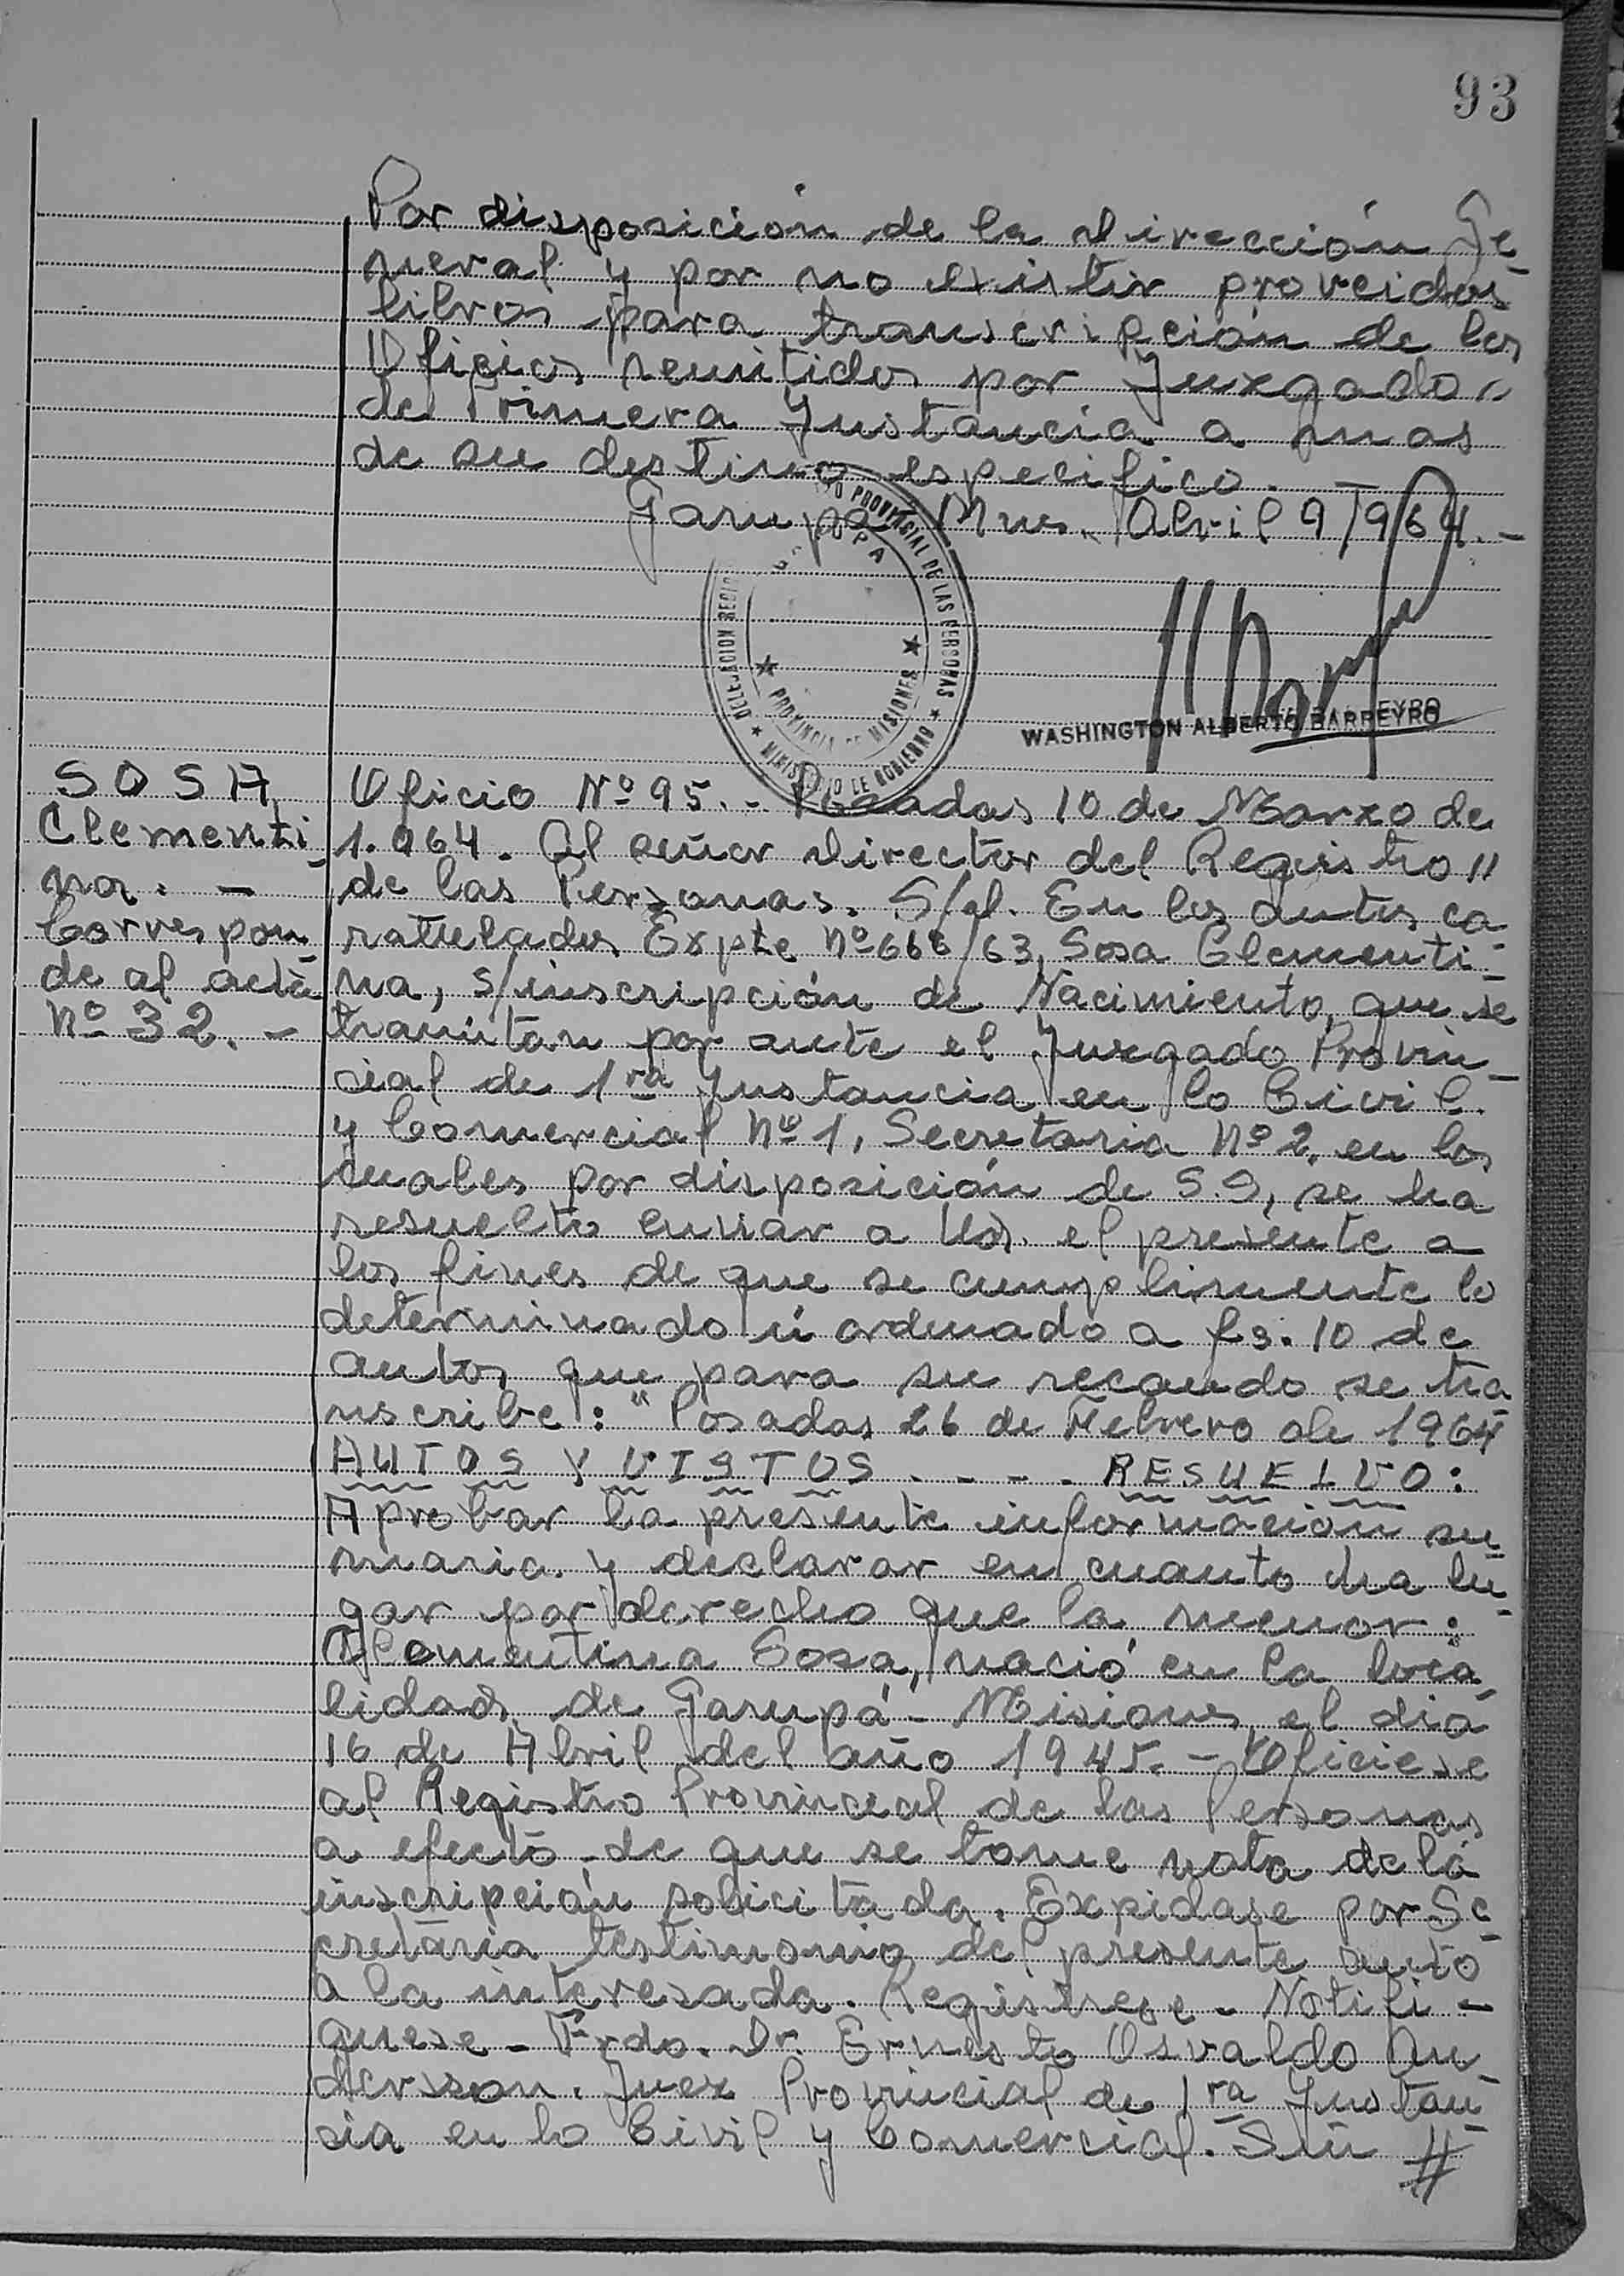 93
Por disposición de la Dirección Ge-
neral y por no existir proveidos
libros para transcripción de los
Oficios remitidos por Juzgado"
de Primera Instancia a mas
de su destino especifico. —
Garupá, Mnes. Abril 9/964.-
PROVINCIAL DE LAS PERSONAS
DELEGACION
PROVINCIA DE MISIONES
MINISTERIO DE GOBIERNO
WASHINGTON ALBERTO BARREYRO
SOSA,
Clementi-
na. -
Correspon-
de al acta
Nº 32. -
Oficio Nº 95.- Posadas 10 de Marzo de
1.964. Al señor Director del Registro "
de las Personas. S/d. En los autos ca-
ratulados Expte Nº 668/63, Sosa Clementi-
na, s/inscripción de Nacimiento, que se
tramitan por ante el Juzgado Provin-
cial de 1ra Instancia en lo Civil
y Comercial Nº 1, Secretaria Nº 2, en los
cuales por disposición de S.S, se ha
resuelto enviar a Ud. el presente a
los fines de que se cumplimente lo
determinado ú ordenado a fs. 10 de
autos que para su recaudo se tra-
nscribe: "Posadas 26 de Febrero de 1964
AUTOS Y VISTOS - - - - RESUELVO:
Aprobar la presente información su-
maria y declarar en cuanto ha lu-
gar por derecho que la menor:
Clementina Sosa, nació en la loca-
lidad de Garupá - Misiones, el dia
16 de Abril del año 1945. - Oficiese
al Registro Provincial de las Personas
a efecto de que se tome nota de la
inscripción solicitada. Expidase por Se-
cretaria testimonio del presente auto
a la interesada. Registrese - Notifi-
quese - Fdo. Dr. Ernesto Osvaldo An-
dersson. Juez Provincial de 1ra Instan-
cia en lo Civil y Comercial. Sin //